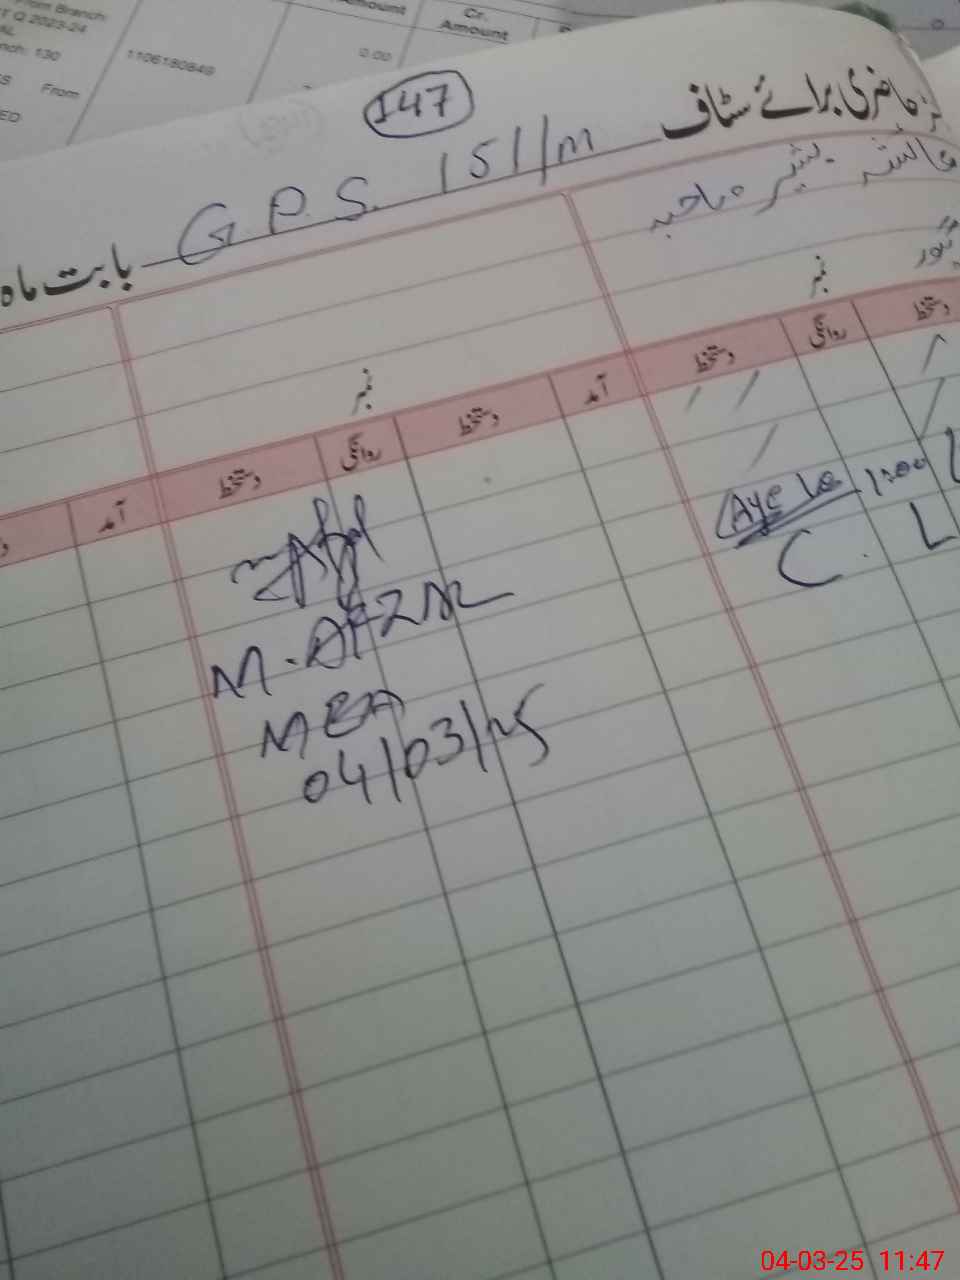 From Branch
Q 2023-24
130
From
1106180849
Amount
0.00
Cr.
Amount
147
حاضری برائے سٹاف
G.P.S. 151/m
بابت ماہ
عائشہ بشیر صاحبہ
نمبر
نمبر
دستخط
روانگی
دستخط
آمد
دستخط
روانگی
دستخط
آمد
C. L
M. AFZAL
MEA
04/03/25
04-03-25 11:47